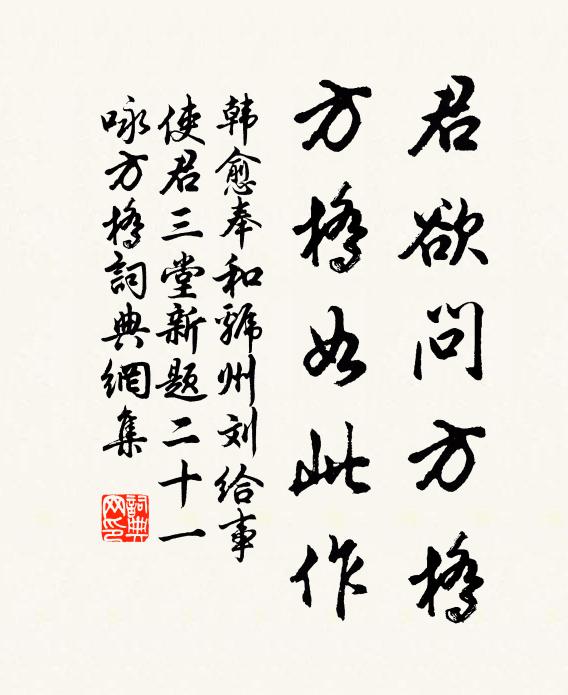 君欲问方橋
方橋如此作
韩愈奉和虢州刘给事
使君三堂新题二十一
咏方橋詞典網集
詞典網印